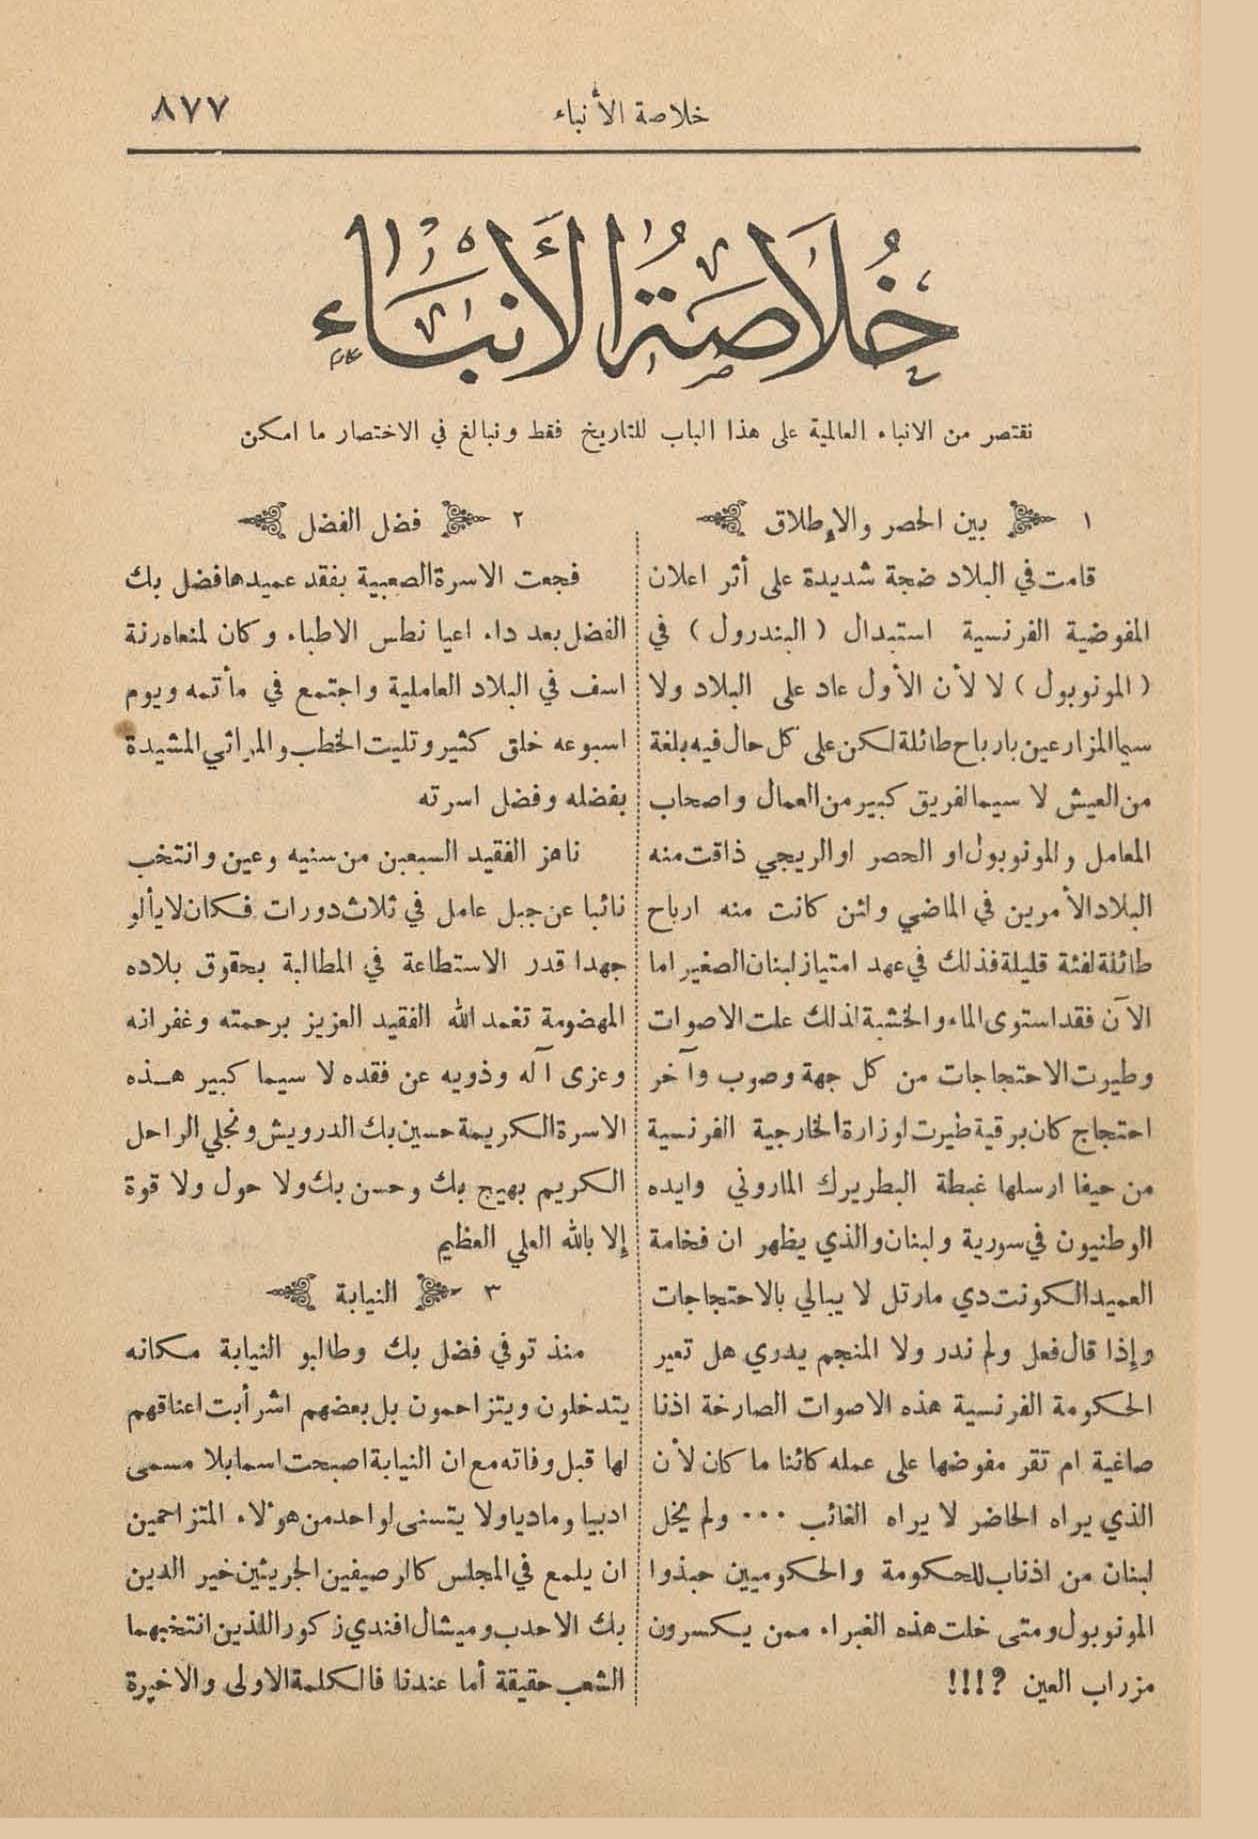 خلاصة الأنباء
٨٧٧
خُلَاصَةُ الأَنْبَاء
نقتصر من الانباء العالمية على هذا الباب للتاريخ فقط ونبالغ في الاختصار ما امكن
١ بين الحصر والإطلاق
قامت في البلاد ضجة شديدة على أثر اعلان
المفوضية الفرنسية استبدال ( البندرول ) في
( المونوبول ) لا لأن الأول عاد على البلاد ولا
سيما المزارعين بارباح طائلة لكن على كل حال فيه بلغة
من العيش لا سيما لفريق كبير من العمال واصحاب
المعامل والمونوبول او الحصر او الريجي ذاقت منه
البلاد الأمرين في الماضي ولئن كانت منه ارباح
طائلة لفئة قليلة فذلك في عهد امتياز لبنان الصغير اما
الآن فقد استوى الماء والخشبة لذلك علت الاصوات
وطيرت الاحتجاجات من كل جهة وصوب وآخر
احتجاج كان برقية طيرت لوزارة الخارجية الفرنسية
من حيفا ارسلها غبطة البطريرك الماروني وايده
الوطنيون في سورية ولبنان والذي يظهر ان فخامة
العميد الكونت دي مارتل لا يبالي بالاحتجاجات
وإذا قال فعل ولم ندر ولا المنجم يدري هل تعير
الحكومة الفرنسية هذه الاصوات الصارخة اذنا
صاغية ام تقر مفوضها على عمله كائنا ما كان لأن
الذي يراه الحاضر لا يراه الغائب ... ولم يخل
لبنان من اذناب للحكومة والحكوميين حبذوا
المونوبول ومتى خلت هذه الغبراء ممن يكسرون
مزراب العين ؟!!!
٢ فضل الفضل
فجعت الاسرة الصعبية بفقد عميدها فضل بك
الفضل بعد داء اعيا نطس الاطباء وكان لمنعاه رنة
اسف في البلاد العاملية واجتمع في مأتمه ويوم
اسبوعه خلق كثير وتليت الخطب والمراثي المشيدة
بفضله وفضل اسرته
ناهز الفقيد السبعين من سنيه وعين وانتخب
نائبا عن جبل عامل في ثلاث دورات فكان لا يألو
جهدا قدر الاستطاعة في المطالبة بحقوق بلاده
المهضومة تغمد الله الفقيد العزيز برحمته وغفرانه
وعزى آله وذويه عن فقده لا سيما كبير هذه
الاسرة الكريمة حسين بك الدرويش ونجلي الراحل
الكريم بهيج بك وحسن بك ولا حول ولا قوة
إلا بالله العلي العظيم
٣ النيابة
منذ توفي فضل بك وطالبو النيابة مكانه
يتدخلون ويتزاحمون بل بعضهم اشرأبت اعناقهم
لها قبل وفاته مع ان النيابة اصبحت اسما بلا مسمى
ادبيا وماديا ولا يتسنى لواحد من هؤلاء المتزاحمين
ان يلمع في المجلس كالرصيفين الجريئين خير الدين
بك الاحدب وميشال افندي زكور اللذين انتخبهما
الشعب حقيقة أما عندنا فالكلمة الاولى والاخيرة